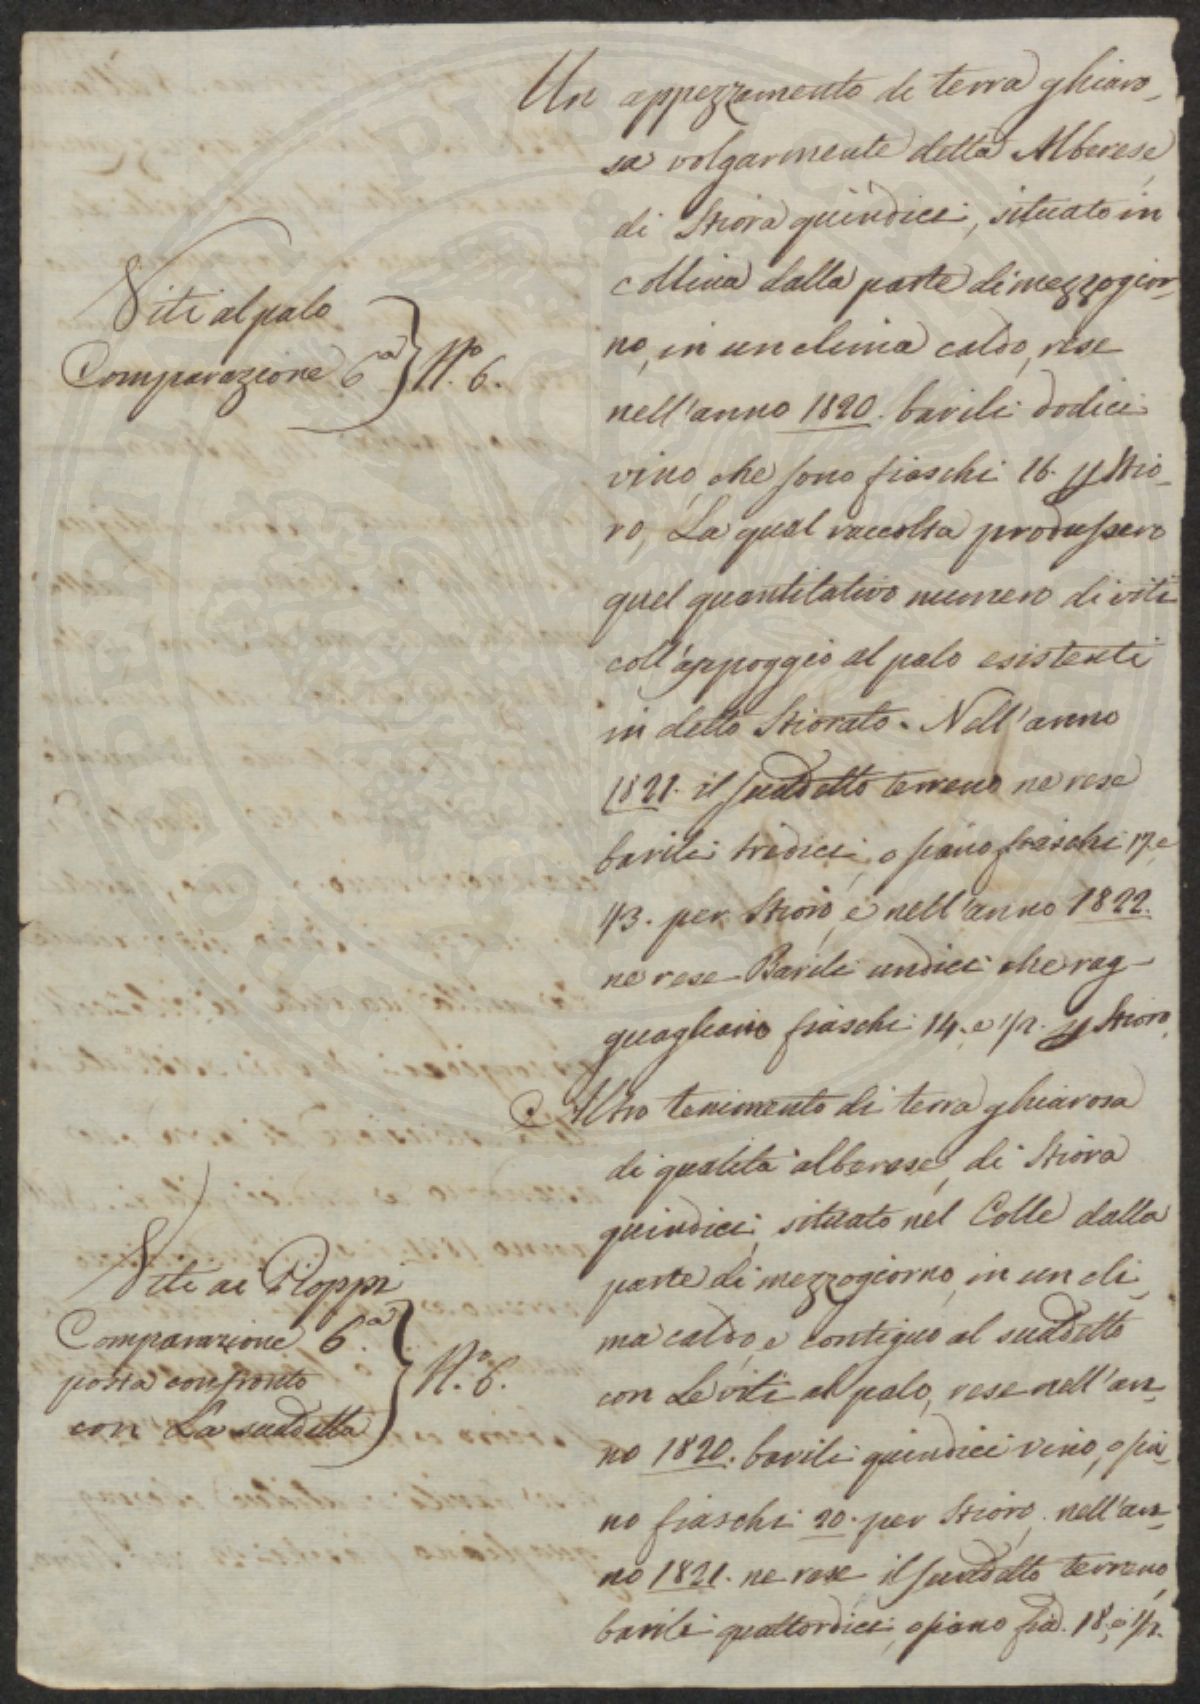 Un appezzamento di terra ghiaro-
sa volgarmente detta Alberese,
di Stiora quindici, situato in
collina dalla parte di mezzogior-
no, in un clima caldo, rese
nell'anno 1820. barili dodici
vino, che sono fiaschi 16. p Stio-
ro, La qual raccolta produssero
quel quantitativo numero di viti
coll'appoggio al palo esistenti
in detto Stiorato. Nell'anno
1821. il suddetto terreno ne rese
barili tredici, o siano fiaschi 17. e
1/3. per Stioro, e nell'anno 1822.
ne rese Barili undici che rag-
guagliano fiaschi 14. e 1/2. p Stioro.
Viti al palo
Comparazione 6a } No. 6.
e Altro tenimento di terra ghiarosa
di qualità alberese, di Stiora
quindici, situato nel Colle dalla
parte di mezzogiorno, in un cli-
ma caldo, e contiguo al suddetto
con Le viti al palo, rese nell'an-
no 1820. barili quindici vino, o sia-
no fiaschi 20. per Stioro, nell'an-
no 1821. ne rese il suddetto terreno
barili quattordici, o siano fia. 18, e 1/2.
Viti ai Pioppi
Comparazione 6.a
posta confronto
con La suddetta } No. 6.